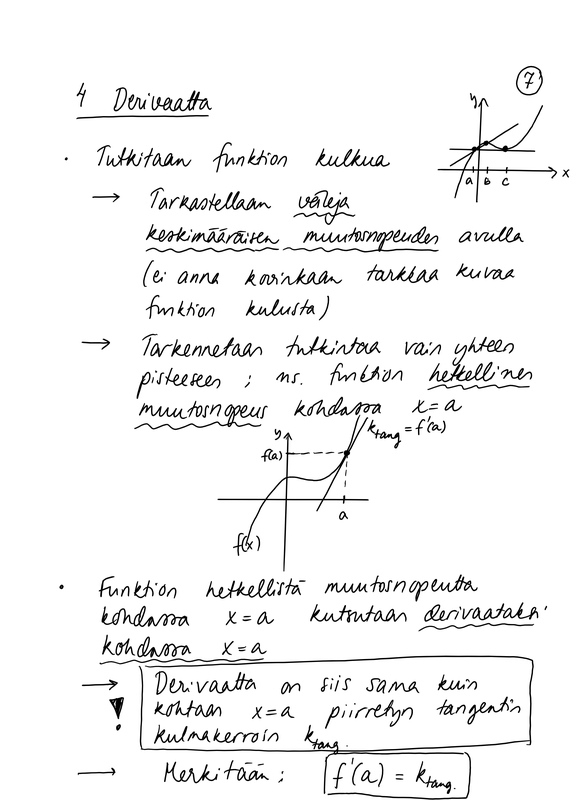 7
4 Derivaatta
y
x
a B c
· Tutkitaan funktion kulkua
→ Tarkastellaan välejä
keskimääräisen muutosnopeuden avulla
(ei anna kovinkaan tarkkaa kuvaa
funktion kulusta)
→ Tarkennetaan tutkintaa vain yhteen
pisteeseen ; ns. funktion hetkellinen
muutosnopeus kohdassa x = a
y
k_tang = f'(a)
f(a)
a
f(x)
· Funktion hetkellistä muutosnopeutta
kohdassa x = a kutsutaan derivaataksi
kohdassa x = a
→ Derivaatta on siis sama kuin
! kohtaan x = a piirretyn tangentin
kulmakerroin k_tang.
→ Merkitään ; f'(a) = k_tang.